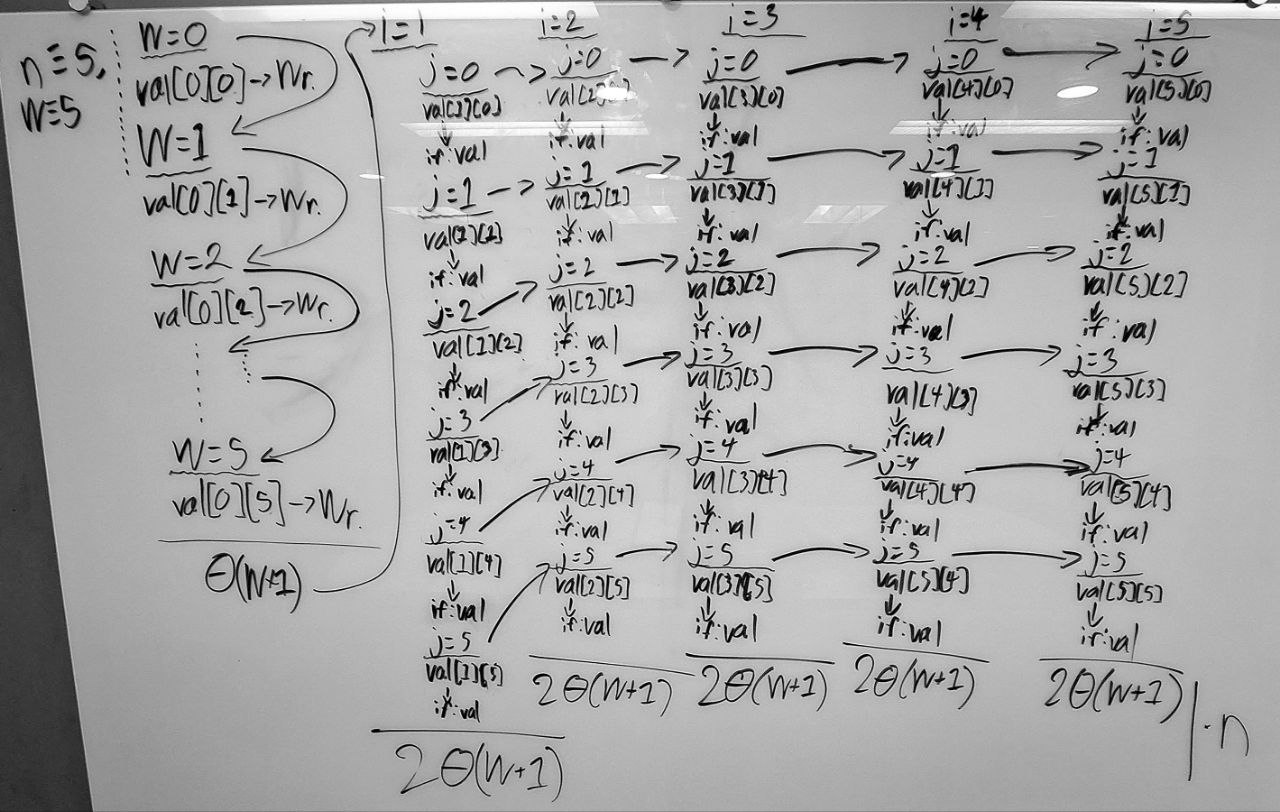 n=5,
W=5
W=0
val[0][0]→Wr.
W=1
val[0][1]→Wr.
W=2
val[0][2]→Wr.
W=5
val[0][5]→Wr.
Θ(W+1)
i=1
j=0
val[1][0]
if:val
j=1
val[1][1]
if:val
j=2
val[1][2]
if:val
j=3
val[1][3]
if:val
j=4
val[1][4]
if:val
j=5
val[1][5]
if:val
2Θ(W+1)
i=2
j=0
val[2][0]
if:val
j=1
val[2][1]
if:val
j=2
val[2][2]
if:val
j=3
val[2][3]
if:val
j=4
val[2][4]
if:val
j=5
val[2][5]
if:val
2Θ(W+1)
i=3
j=0
val[3][0]
if:val
j=1
val[3][1]
if:val
j=2
val[3][2]
if:val
j=3
val[3][3]
if:val
j=4
val[3][4]
if:val
j=5
val[3][5]
if:val
2Θ(W+1)
i=4
j=0
val[4][0]
if:val
j=1
val[4][1]
if:val
j=2
val[4][2]
if:val
j=3
val[4][3]
if:val
j=4
val[4][4]
if:val
j=5
val[5][4]
if:val
2Θ(W+1)
i=5
j=0
val[5][0]
if:val
j=1
val[5][1]
if:val
j=2
val[5][2]
if:val
j=3
val[5][3]
if:val
j=4
val[5][4]
if:val
j=5
val[5][5]
if:val
2Θ(W+1)
|·n